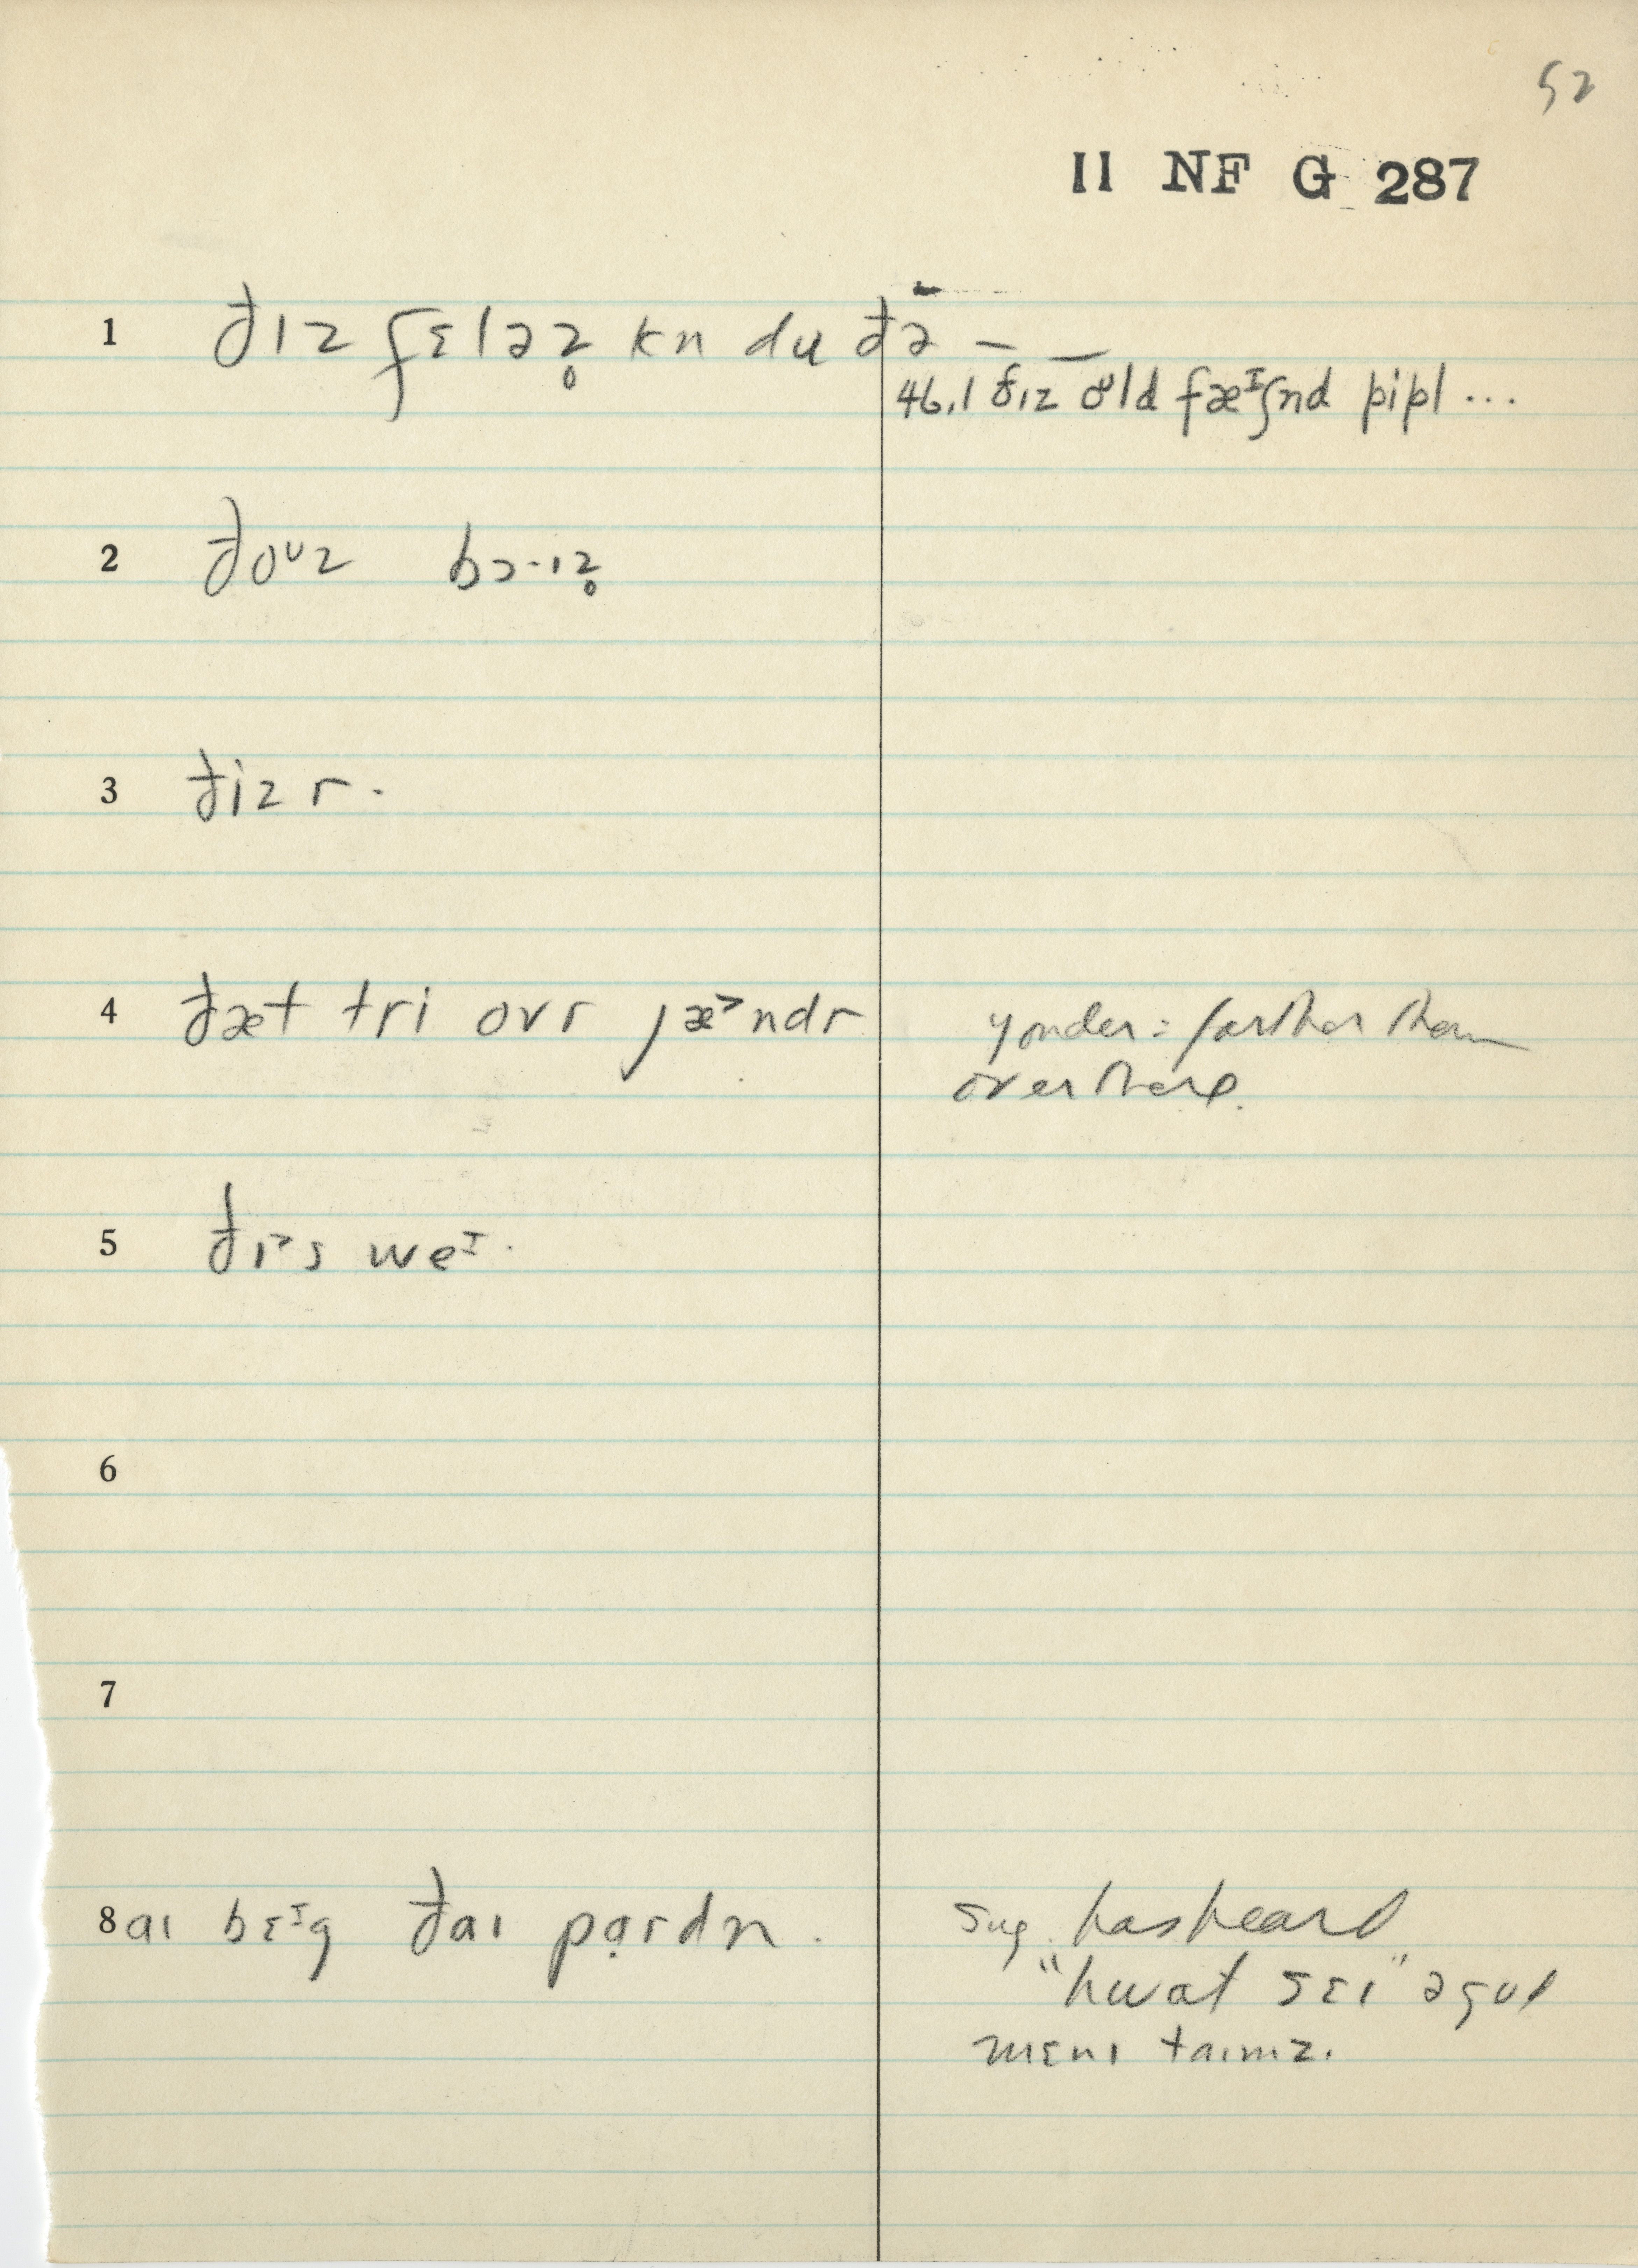 52
II NF G 287
1 ðɪz fɛləz̥ kn du ðə — —
46.1 ðɪz oᶷld fæᴵʃnd pipl ...
2 ðoᶸz bɔ·ɪz̥
3 ðiz r.
4 ðæt tri ovr jæ˃ndr
yonder: farther than
over there.
5 ðɪ˃s weᴵ.
6
7
8 aɪ bɛᴵg ðaɪ pạrdn.
sug. has heard
"hwat sɛɪ"
mɛnɪ taɪmz.